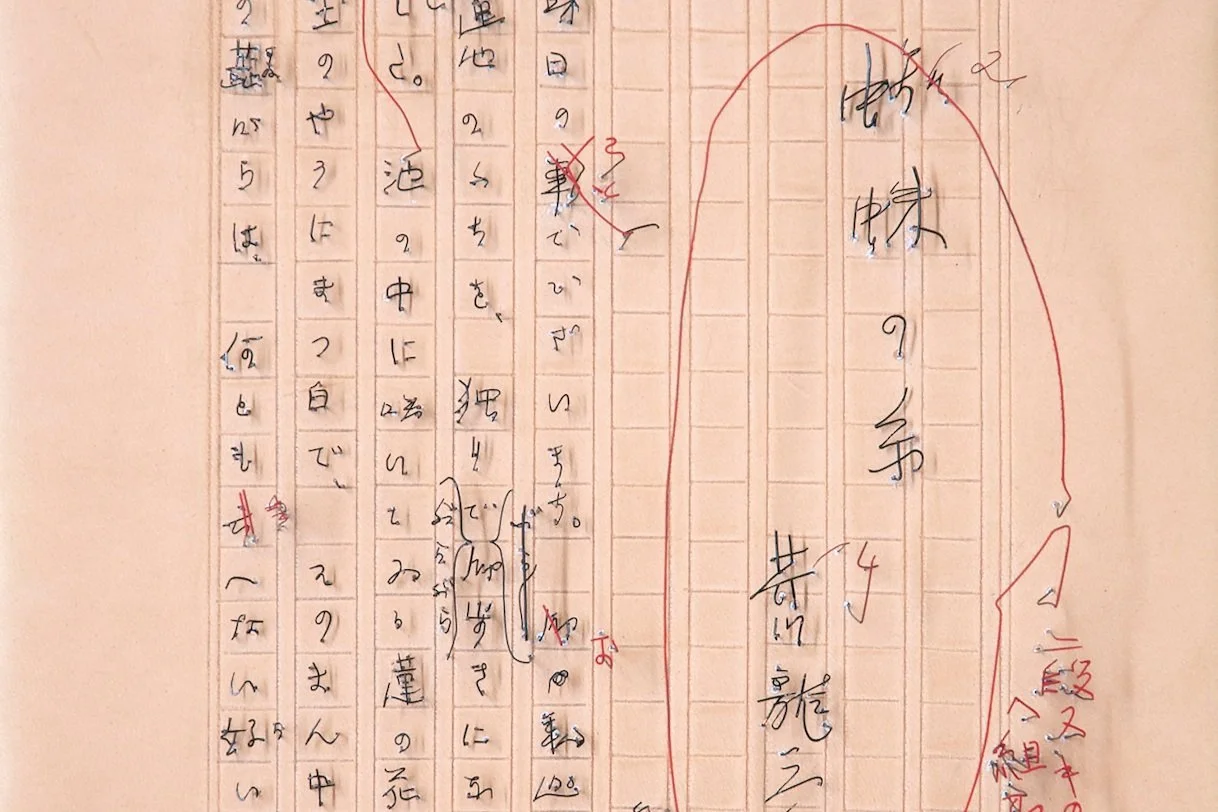 2
二段ヌキ
蜘蛛の糸
4
芥川龍之
日の事でございます。御釈迦
お
蓮池のふちを、独りで御歩きにな
ぶらぶら
した。池の中に咲いてゐる蓮の花
玉のやうにまつ白で、そのまん中
の蕊からは、何とも云へない好い